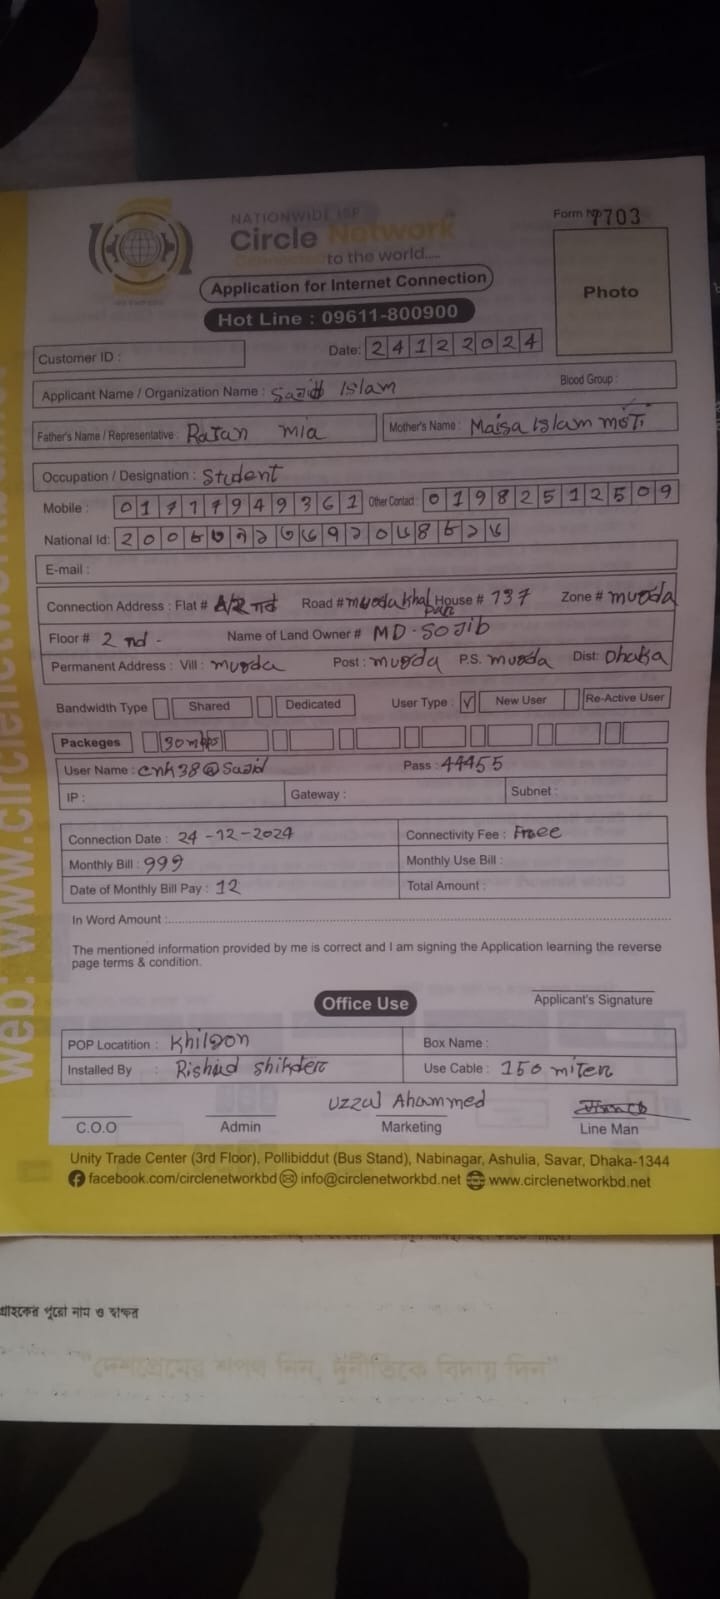 NATIONWIDE ISP
Circle Network
Connected to the world....
Form No 7703
Application for Internet Connection
Photo
Hot Line : 09611-800900
Customer ID :
Date: 24122024
Applicant Name / Organization Name : Sajid Islam
Blood Group :
Father's Name / Representative : Ratan mia
Mother's Name : Maisa Islam
Occupation / Designation : Student
Mobile : 01771949361 Other Contact : 01982512509
National Id:
E-mail :
Connection Address : Flat # Road # House # 137 Zone # mugda
Floor # 2 nd - Name of Land Owner # MD-Sojib
Permanent Address : Vill : mugda Post : mugda P.S. mugda Dist: Dhaka
Bandwidth Type Shared Dedicated User Type : ✓ New User Re-Active User
Packeges 30 mbps
User Name : cnk38@Sajid Pass : 44455
IP : Gateway : Subnet :
Connection Date : 24-12-2024 Connectivity Fee : Free
Monthly Bill : 999 Monthly Use Bill :
Date of Monthly Bill Pay : 12 Total Amount :
In Word Amount :
The mentioned information provided by me is correct and I am signing the Application learning the reverse
page terms & condition.
Applicant's Signature
Office Use
POP Locatition : Khilgon Box Name :
Installed By : Rishad Shikder Use Cable : 150 miter
Uzzal Ahammed
C.O.O Admin Marketing Line Man
Unity Trade Center (3rd Floor), Pollibiddut (Bus Stand), Nabinagar, Ashulia, Savar, Dhaka-1344
facebook.com/circlenetworkbd info@circlenetworkbd.net www.circlenetworkbd.net
web: www.circlenetwork
গ্রাহকের পুরো নাম ও স্বাক্ষর
"দেশপ্রেমের শপথ নিন, দুর্নীতিকে বিদায় দিন"